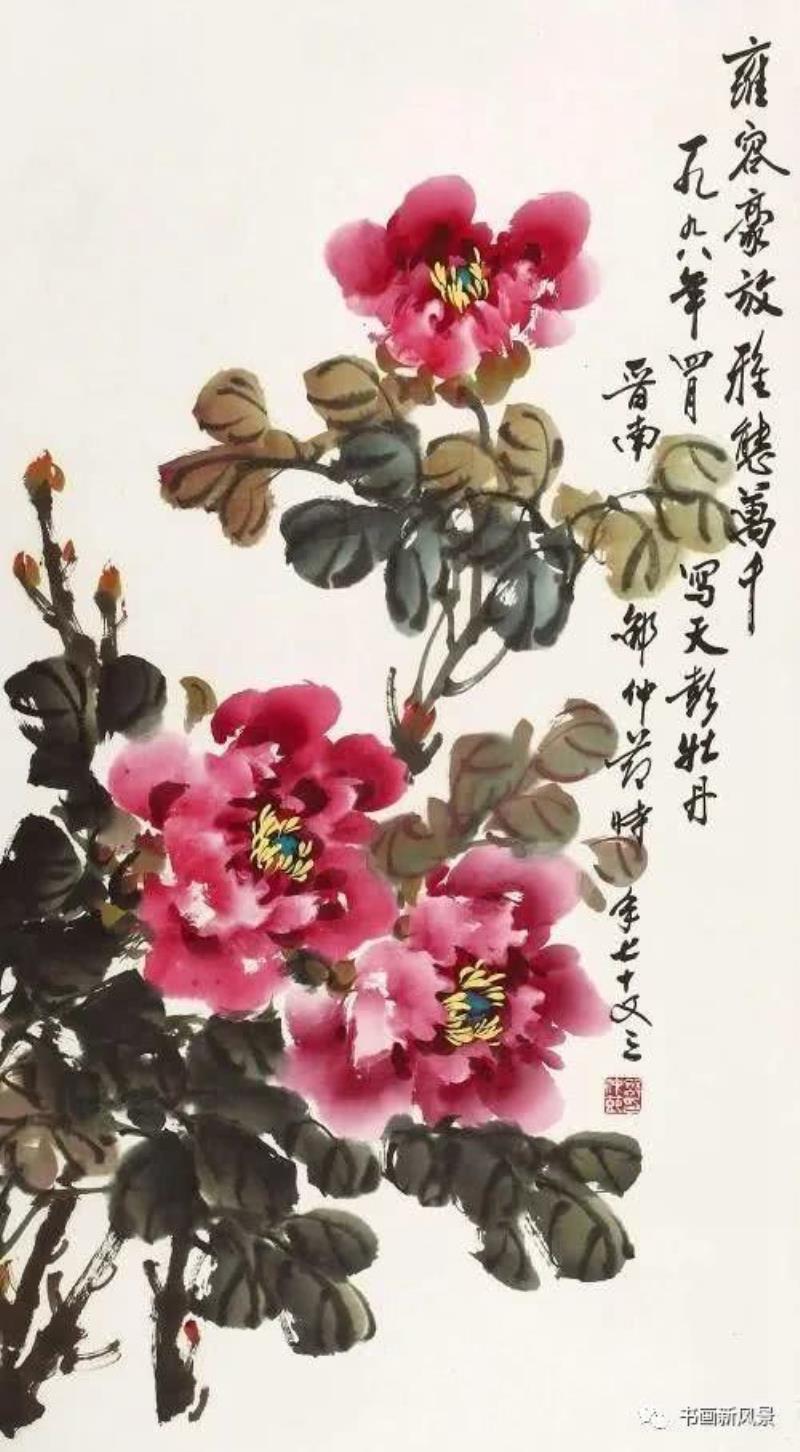 雍容豪放雅態萬千
一九九八年四月 写天彭牡丹
晋南 邹仲节時年七十又三
书画新风景